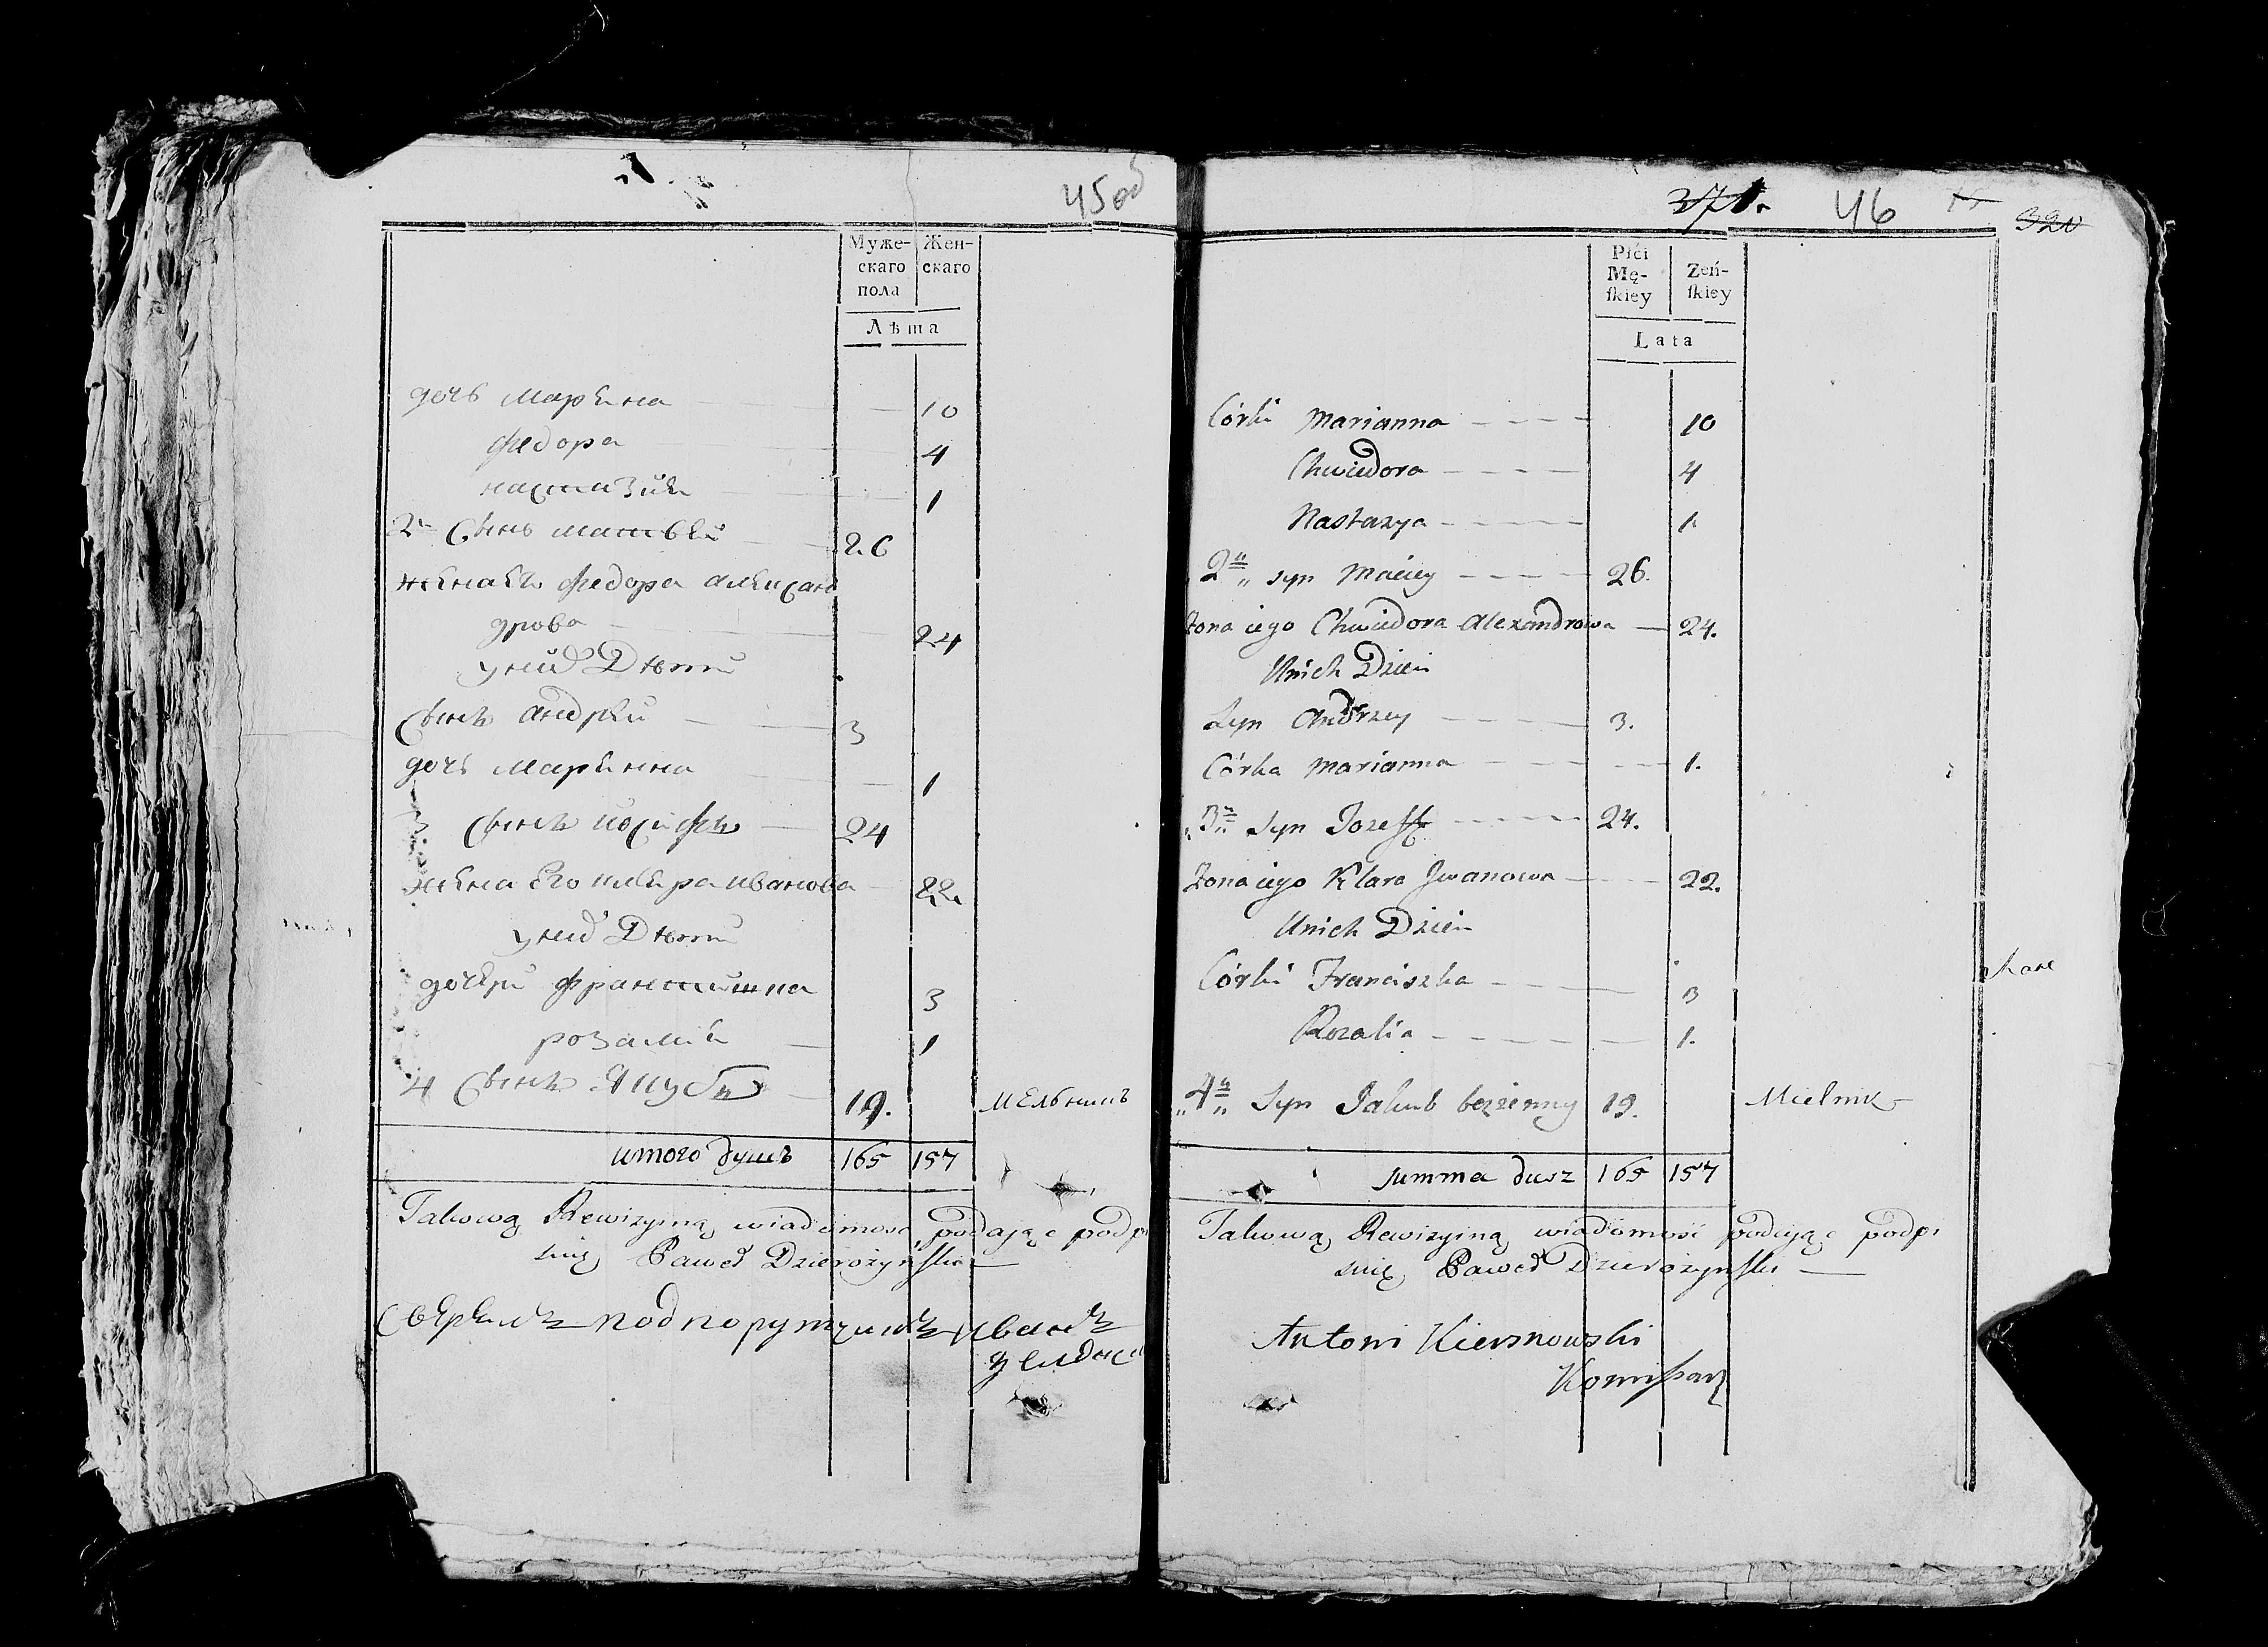 45об
Муже-
скаго
пола
Жен-
скаго
Лѣта
дочь Марѣна 10
Федора 4
настазия 1
2й Сынъ матвей 26
жена ево федора алексан
дрова 24
у них Дѣти
Сынъ андрей 3
дочь Марѣнна 1
3. Сынъ иосифъ 24
жена Его клара иванова 22.
у них Дѣти
дочери францишка 3
розалия 1
4 Сынъ Якубъ 19. Мельникъ
итого душъ 165 157
Takową Rewizyiną wiadomosć podaiąc podp
suię Paweł Dzierożyński
Сверялъ подпорутчикъ Иванъ
371. 46 15 320
Płci
Mę-
ſkiey
Zeń-
ſkiey
Lata
Córki Marianna 10
Chwiedora 4
Nastazya 1.
2й syn Maciey 26.
Zona iego Chwiedora Alexandrowa 24.
Unich Dzieci
Syn Andrzey 3.
Córka Marianna 1.
3й Syn Jozeff 24.
Zona iego Klara Jwanowa 22.
Unich Dzieci
Córki Franciszka 3
Rozalia 1.
4й Syn Jakub bezżenny 19. Mielnik
summa dusz 165 157
Takową Rewizyiną wiadomosć podaiąc podpi
suię Paweł Dzierożyński
Antoni Kiersnowski
Komissarz